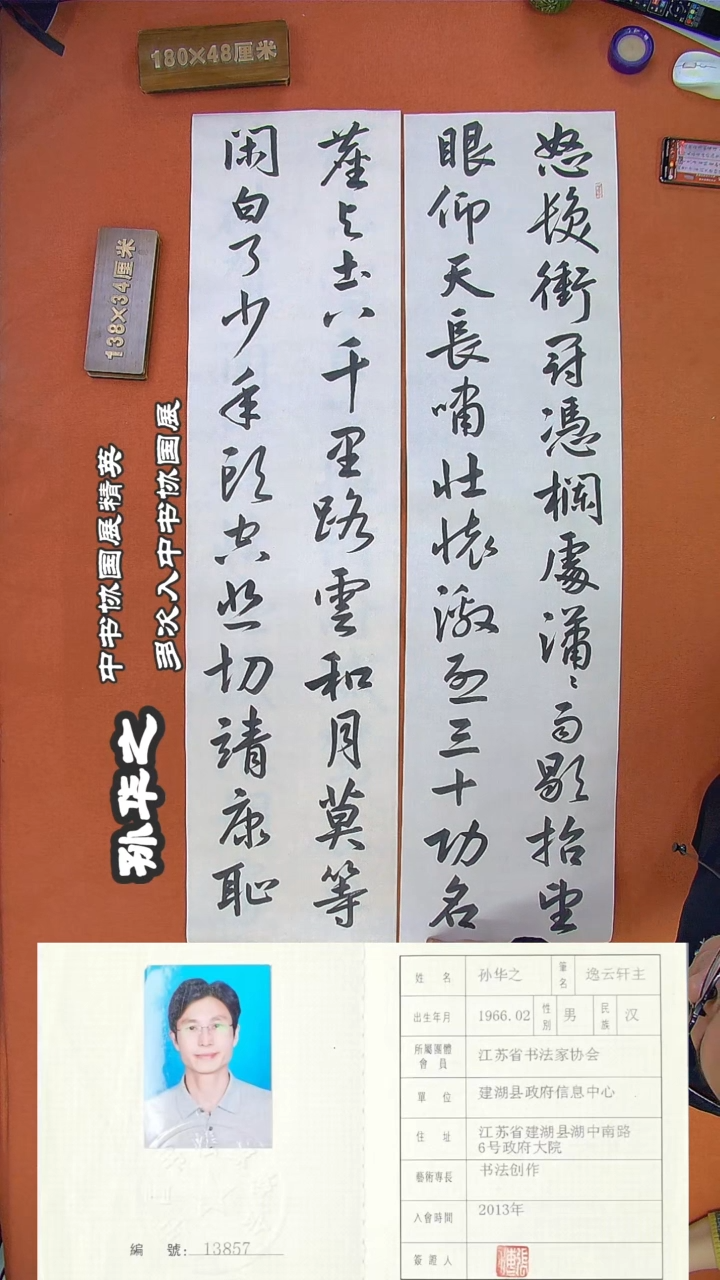 180×48厘米
138×34厘米
怒髮衝冠憑欄處瀟〻雨歇抬望
眼仰天長嘯壯懷激烈三十功名
塵与土八千里路雲和月莫等
閑白了少年頭空悲切靖康恥
多次入中书协国展
中书协国展精英
孙华之
姓名 孙华之 筆名 逸云轩主
出生年月 1966.02 性别 男 民族 汉
所屬團體會員 江苏省书法家协会
單位 建湖县政府信息中心
住址 江苏省建湖县湖中南路
6号政府大院
藝術專長 书法创作
入會時間 2013年
簽證人
編號: 13857